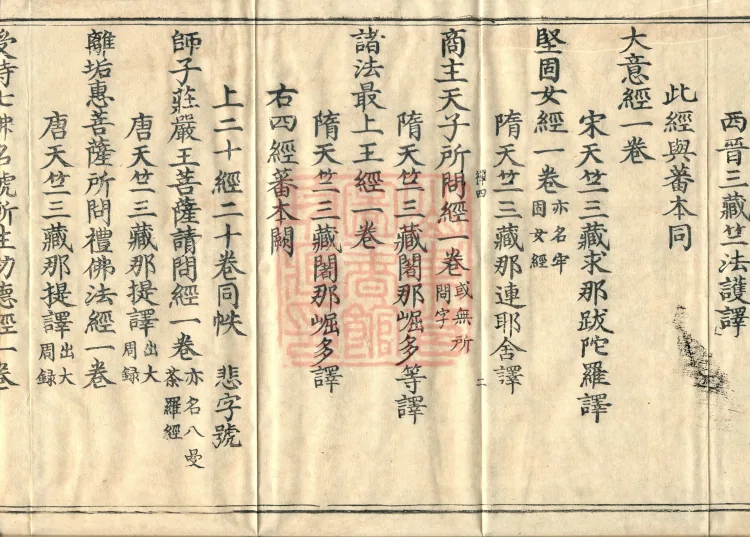 西晉三藏竺法護譯
此經與蕃本同
大意經一卷
宋天竺三藏求那跋陀羅譯
堅固女經一卷 亦名牢固女經
隋天竺三藏那連耶舍譯
商主天子所問經一卷 或無所問字
隋天竺三藏闍那崛多等譯
諸法最上王經一卷
隋天竺三藏闍那崛多譯
右四經蕃本闕
上二十經二十卷同帙 悲字號
師子莊嚴王菩薩請問經一卷 亦名八曼荼羅經
唐天竺三藏那提譯 出大周錄
離垢惠菩薩所問禮佛法經一卷
唐天竺三藏那提譯 出大周錄
受持七佛名號所生功德經一卷